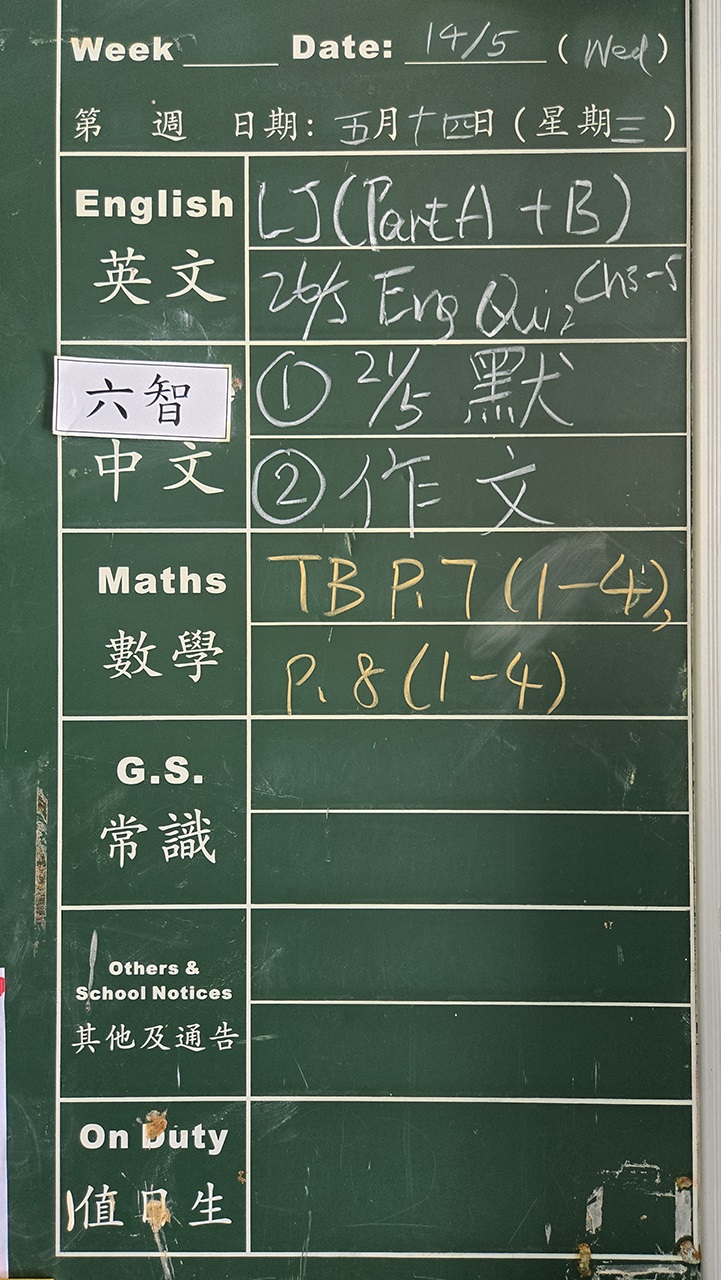 Week ____ Date: 14/5 (Wed)
第 週 日期: 五月十四日(星期三)
English
英文
LJ (Part A + B)
26/5 Eng Quiz Ch3-5
六智
中文
① 21/5 默
② 作文
Maths
數學
TB P.7 (1-4),
P.8 (1-4)
G.S.
常識
Others &
School Notices
其他及通告
On Duty
值日生